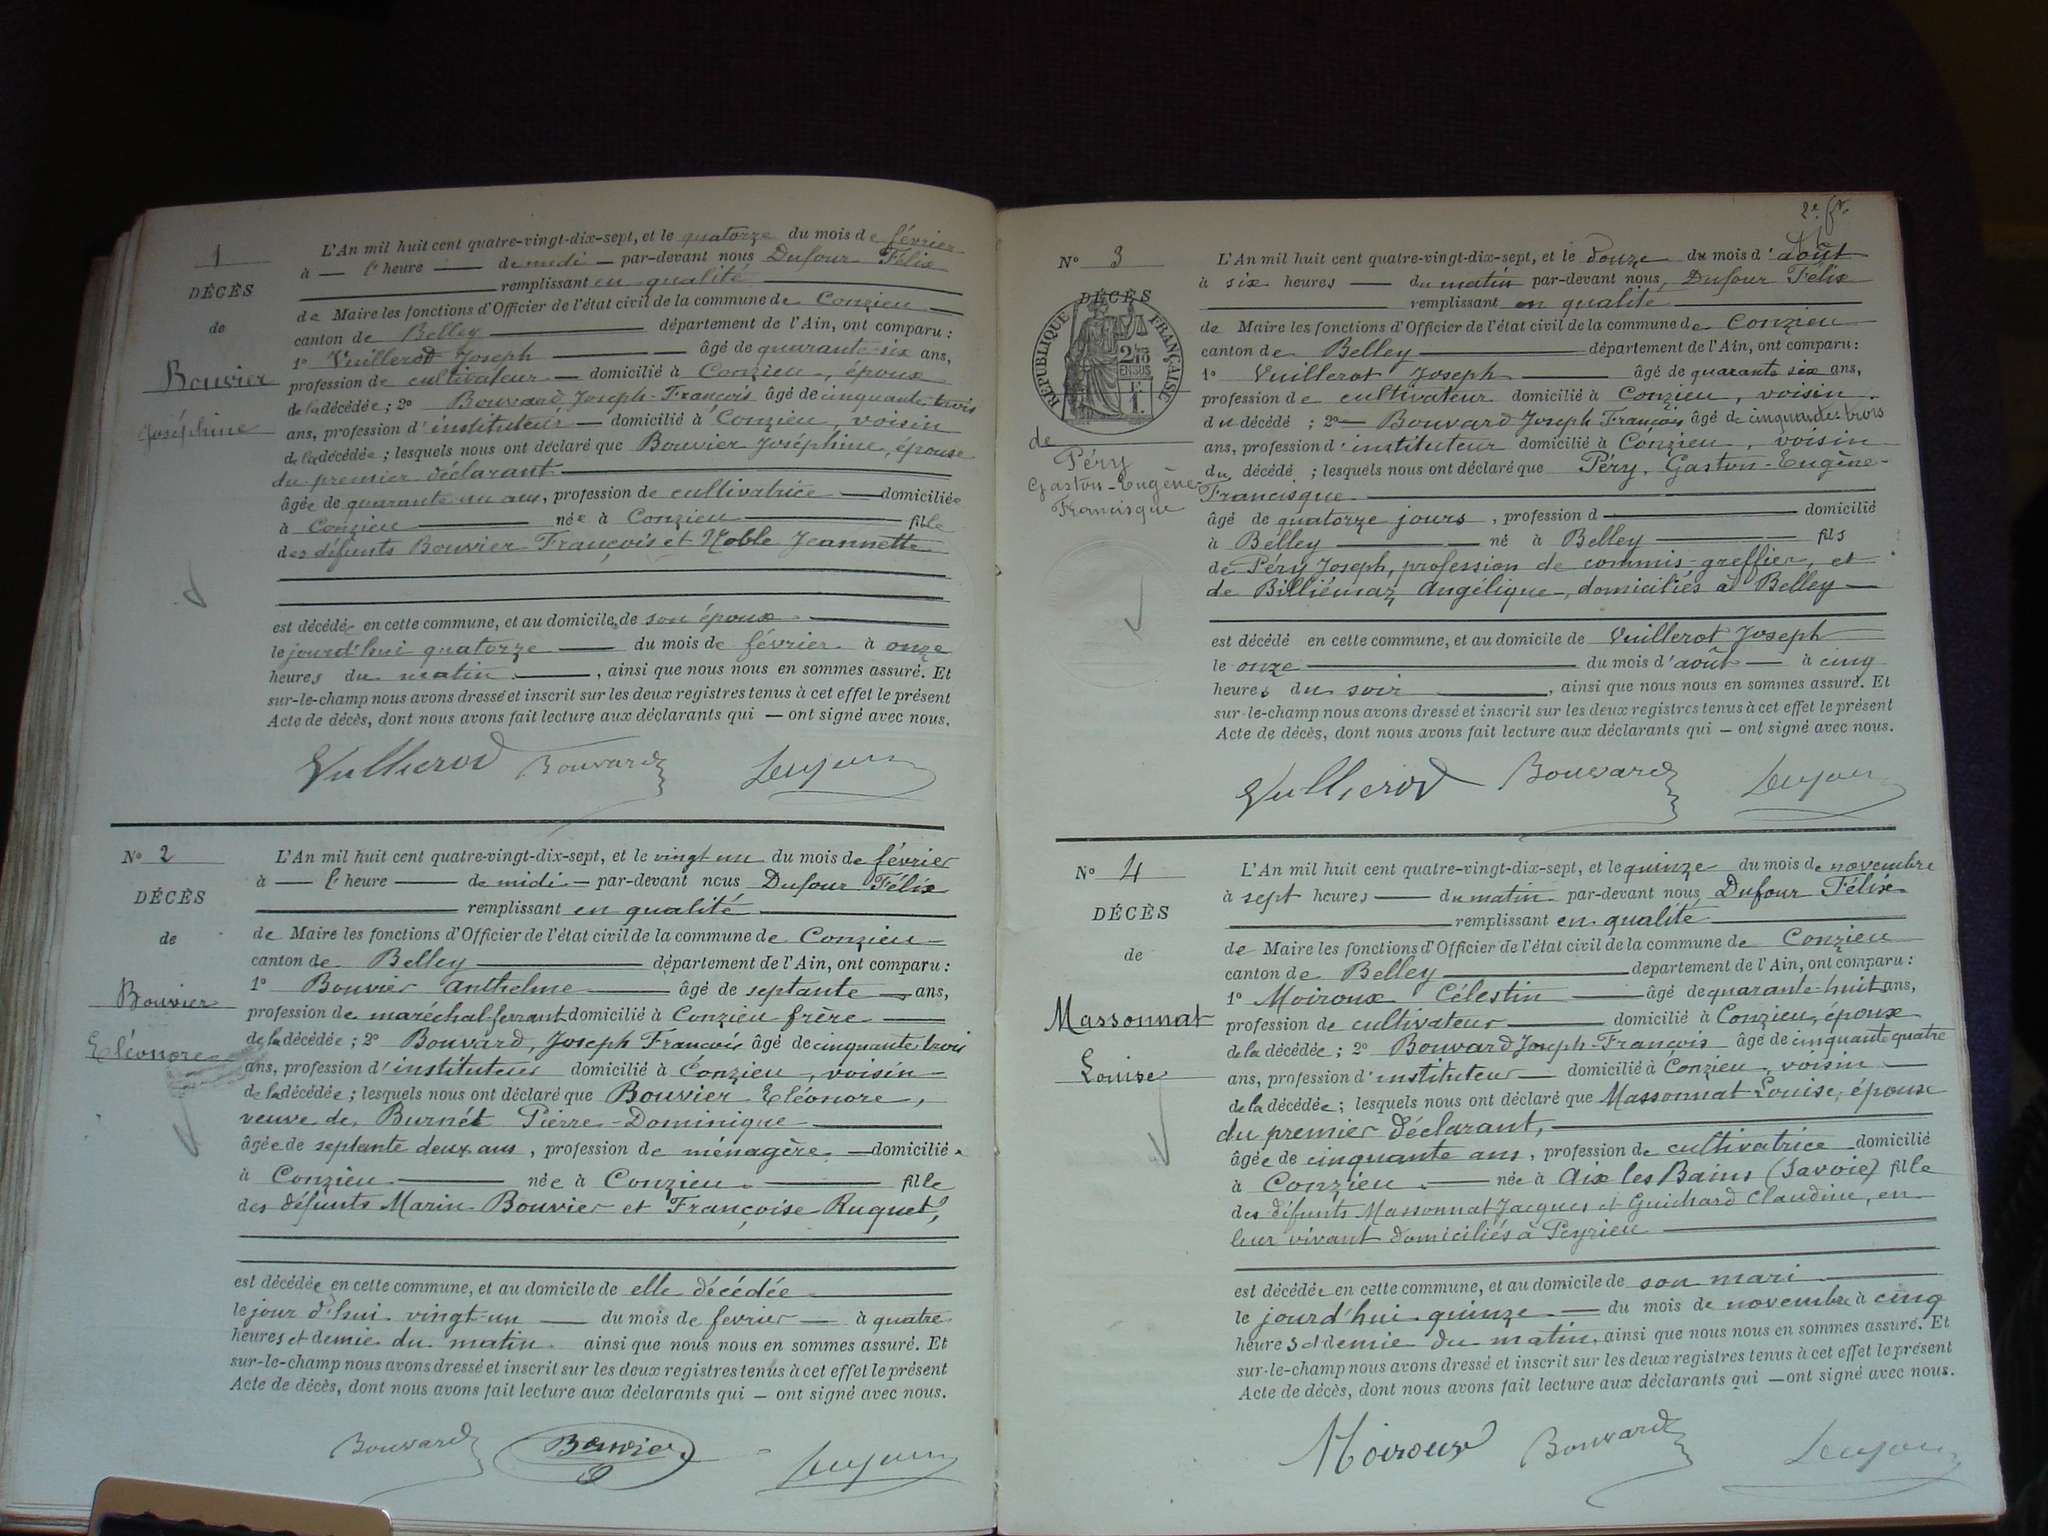 1
DÉCÈS
de
Bouvier
Joséphine
L'An mil huit cent quatre-vingt-dix-sept, et le quatorze du mois de février
à — l'heure — de midi — par-devant nous Dufour Félix
remplissant en qualité
de Maire les fonctions d'Officier de l'état civil de la commune de Conzieu
canton de Belley département de l'Ain, ont comparu :
1º Vuillerod Joseph âgé de quarante-six ans,
profession de cultivateur — domicilié à Conzieu, époux
de la décédée ; 2º Bouvard Joseph-François âgé de cinquante trois
ans, profession d'instituteur — domicilié à Conzieu, voisin
de la décédée ; lesquels nous ont déclaré que Bouvier Joséphine, épouse
du premier déclarant
âgée de quarante un ans, profession de cultivatrice — domiciliée
à Conzieu née à Conzieu fille
des défunts Bouvier François et Noble Jeannette
est décédée en cette commune, et au domicile de son époux
le jourd'hui quatorze — du mois de février à onze
heures du matin —, ainsi que nous nous en sommes assuré. Et
sur-le-champ nous avons dressé et inscrit sur les deux registres tenus à cet effet le présent
Acte de décès, dont nous avons fait lecture aux déclarants qui — ont signé avec nous.
Vullierod Bouvard
Nº 2
DÉCÈS
de
Bouvier
Eléonore
L'An mil huit cent quatre-vingt-dix-sept, et le vingt-un du mois de février
à — l'heure — de midi — par-devant nous Dufour Félix
remplissant en qualité
de Maire les fonctions d'Officier de l'état civil de la commune de Conzieu
canton de Belley département de l'Ain, ont comparu :
1º Bouvier Anthelme âgé de septante — ans,
profession de maréchal-ferrant domicilié à Conzieu frère
de la décédée ; 2º Bouvard, Joseph François âgé de cinquante trois
ans, profession d'instituteur domicilié à Conzieu, voisin
de la décédée ; lesquels nous ont déclaré que Bouvier Eléonore,
veuve de Burnét Pierre-Dominique
âgée de septante deux ans, profession de ménagère — domicilié
à Conzieu née à Conzieu fille
des défunts Marin Bouvier et Françoise Ruquet,
est décédée en cette commune, et au domicile de elle décédée
le jour d'hui vingt-un — du mois de fevrier — à quatre
heures et demie du matin ainsi que nous nous en sommes assuré. Et
sur-le-champ nous avons dressé et inscrit sur les deux registres tenus à cet effet le présent
Acte de décès, dont nous avons fait lecture aux déclarants qui — ont signé avec nous.
Bouvard Bouvier
2e
Nº 3
DÉCÈS
RÉPUBLIQUE FRANÇAISE
EN SUS
de
Péry
Gaston-Eugène
Francisque
L'An mil huit cent quatre-vingt-dix-sept, et le douze du mois d'août
à six heures — du matin par-devant nous, Dufour Félix
remplissant en qualité
de Maire les fonctions d'Officier de l'état civil de la commune de Conzieu
canton de Belley département de l'Ain, ont comparu :
1º Vuillerot Joseph âgé de quarante six ans,
profession de cultivateur domicilié à Conzieu, voisin
du décédé ; 2º Bouvard Joseph François âgé de cinquante trois
ans, profession d'instituteur domicilié à Conzieu, voisin
du décédé ; lesquels nous ont déclaré que Péry, Gaston-Eugène-
Francisque
âgé de quatorze jours, profession d domicilié
à Belley né à Belley fils
de Péry Joseph, profession de commis-greffier, et
de Billiémaz Angélique, domiciliés à Belley
est décédé en cette commune, et au domicile de Vuillerot Joseph
le onze du mois d'août — à cinq
heures du soir, ainsi que nous nous en sommes assuré. Et
sur-le-champ nous avons dressé et inscrit sur les deux registres tenus à cet effet le présent
Acte de décès, dont nous avons fait lecture aux déclarants qui — ont signé avec nous.
Vullierod Bouvard
Nº 4
DÉCÈS
de
Massonnat
Louise
L'An mil huit cent quatre-vingt-dix-sept, et le quinze du mois de novembre
à sept heures — du matin par-devant nous, Dufour Félix
remplissant en qualité
de Maire les fonctions d'Officier de l'état civil de la commune de Conzieu
canton de Belley département de l'Ain, ont comparu :
1º Moiroux Célestin — âgé de quarante-huit ans,
profession de cultivateur domicilié à Conzieu, époux
de la décédée ; 2º Bouvard Joseph-François âgé de cinquante quatre
ans, profession d'instituteur — domicilié à Conzieu, voisin
de la décédée ; lesquels nous ont déclaré que Massonnat Louise, épouse
du premier déclarant,
âgée de cinquante ans, profession de cultivatrice domicilié
à Conzieu — née à Aix les Bains (Savoie) fille
des défunts Massonnat Jacques et Guichard Claudine, en
leur vivant domiciliés à Peyrieu
est décédée en cette commune, et au domicile de son mari
le jourd'hui quinze — du mois de novembre à cinq
heures et demie du matin, ainsi que nous nous en sommes assuré. Et
sur-le-champ nous avons dressé et inscrit sur les deux registres tenus à cet effet le présent
Acte de décès, dont nous avons fait lecture aux déclarants qui — ont signé avec nous.
Moiroux Bouvard